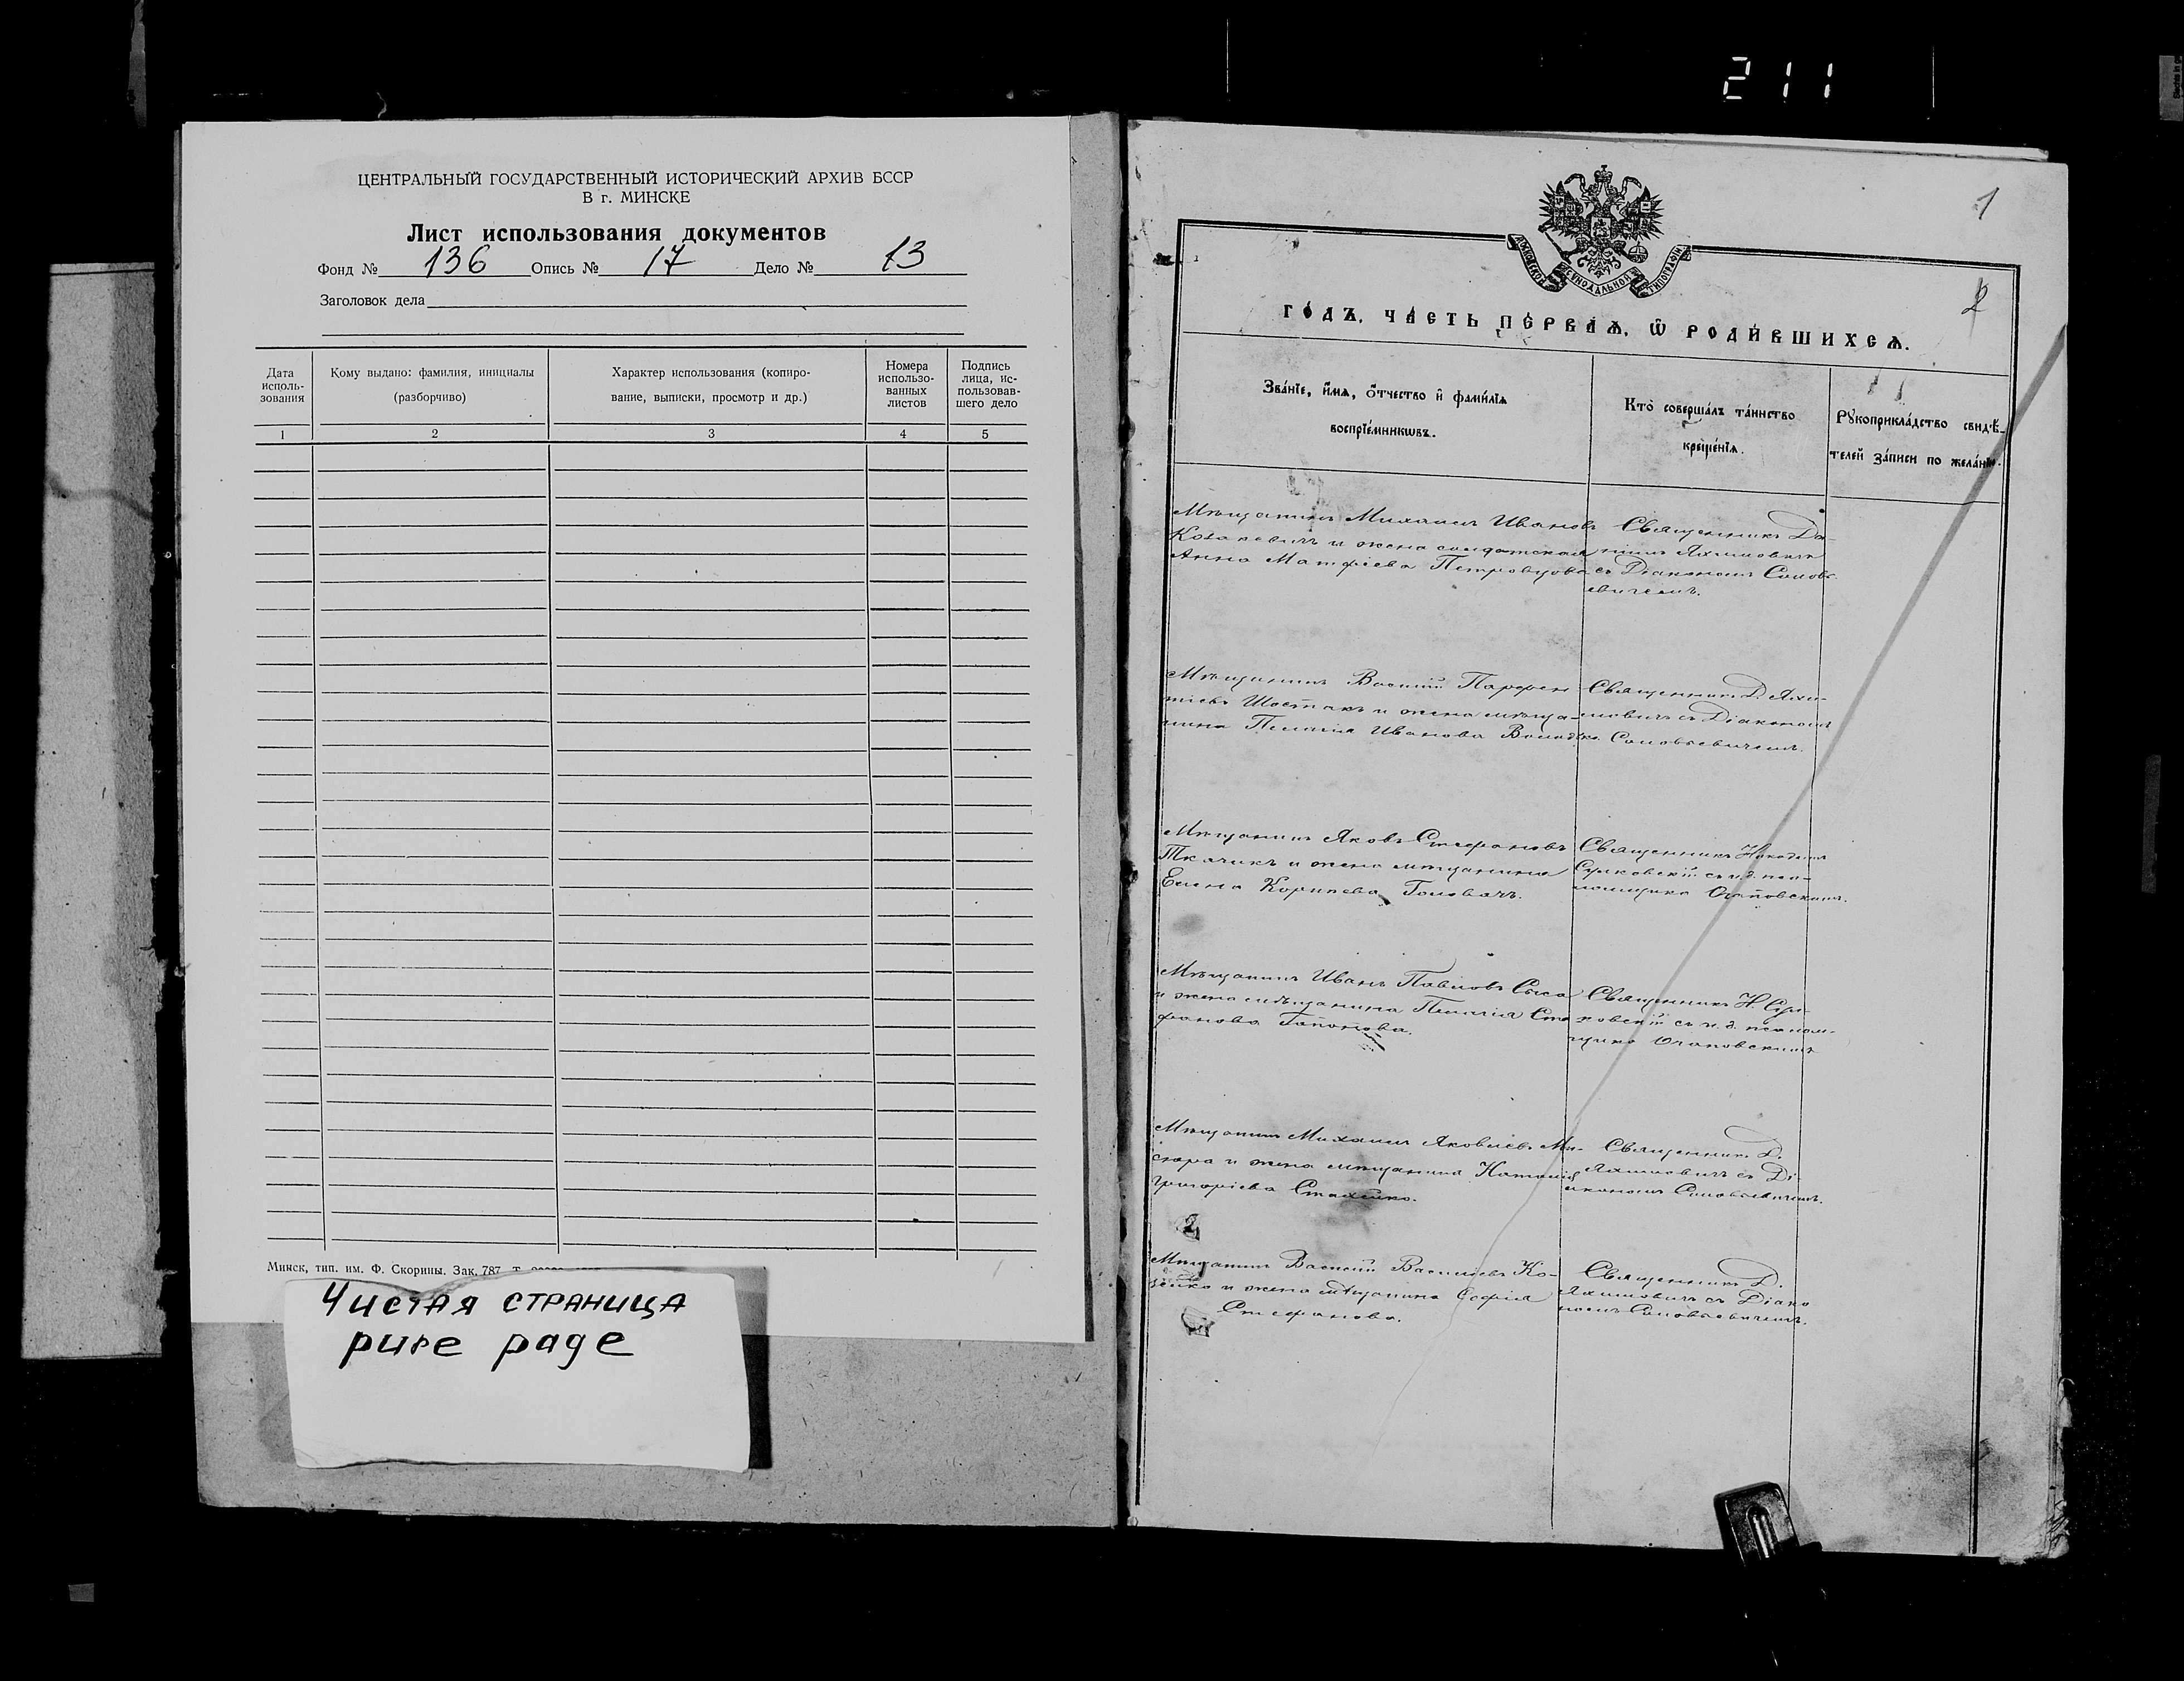 211
ЦЕНТРАЛЬНЫЙ ГОСУДАРСТВЕННЫЙ ИСТОРИЧЕСКИЙ АРХИВ БССР
В г. МИНСКЕ
Лист использования документов
Фонд № 136 Опись № 17 Дело № 13
Заголовок дела
Дата исполь-зования
Кому выдано: фамилия, инициалы
(разборчиво)
Характер использования (копиро-
вание, выписки, просмотр и др.)
Номера использо-ванных листов
Подпись лица, ис-пользовав-шего дело
1 2 3 4 5
Минск, тип. им. Ф. Скорины. Зак. 787
Чистая страница
pure page
1
2
МОСКОВСКОЙ СѴНОДАЛЬНОЙ ТИПОГРАФІИ
ГО́ДЪ. ЧА́СТЬ ПЕ́РВАѦ. Ѿ РОДИ́ВШИХСѦ.
Зва́нїе, и҆́мѧ, ѻ҆́тчество и҆ фами́лїѧ
воспрїе́мникѡвъ.
Кто̀ соверша́лъ та́инство
креще́нїѧ.
Рꙋкоприкла́дство свидѣ́-
телей за́писи по жела́нїю.
Мѣщанинъ Михаилъ Ивановъ
Козакевичъ и жена солдатская
Анна Матфіева Петровцова
Священникъ Да-
ніилъ Яхимовичъ
съ Діакономъ Соловь-
евичемъ.
Мѣщанинъ Василій Парфен-
тіевъ Шостакъ и жена мѣща-
нина Пелагія Иванова
Священникъ Д. Яхи-
мовичъ съ Діакономъ
Соловьевичемъ.
Мѣщанинъ Яковъ Стефановъ
Ткачикъ и жена мѣщанина
Елена Корниева Головачъ.
Священникъ Никодимъ
съ и. д. псал-
мщика
Мѣщанинъ Иванъ Павловъ
и жена мѣщанина Пелагія Сте-
фанова Гапонова.
Священникъ Н.
съ и. д. псалом-
щика
Мѣщанинъ Михаилъ Яковлевъ Ми-
сюра и жена мѣщанина Наталія
Григоріева
Священникъ Д.
Яхимовичъ съ Ді-
акономъ Соловьевичемъ.
2
Мѣщанинъ Василій Васильевъ Ко-
зейко и жена мѣщанина Софія
Стефанова.
Священникъ Д.
Яхимовичъ съ Діако-
номъ Соловьевичемъ.